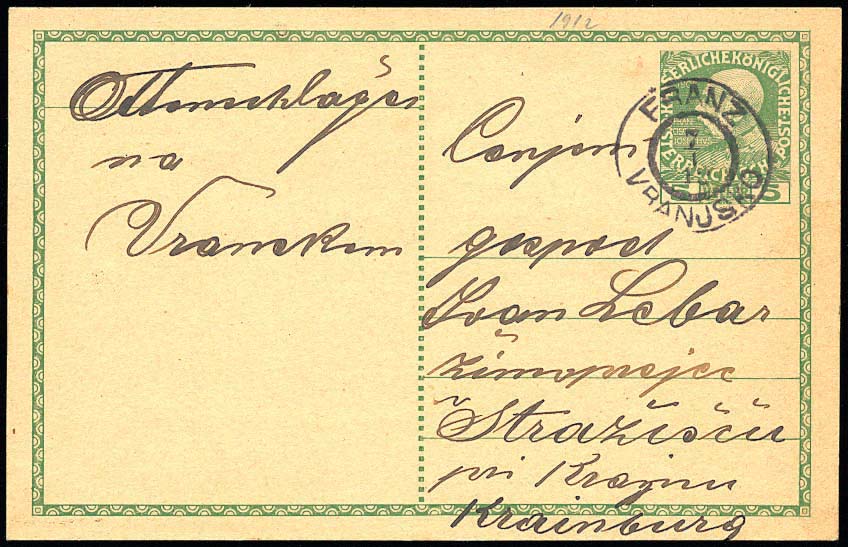 1912
Ottenschläger
na
Vranskem
KAISERLICHE KÖNIGLICHE POST
5
FRANZ
VRANJSKO
Cenjeni
gospod
Ivan Lebar
žimoprejec
Stražišču
pri Kranju
Krainburg